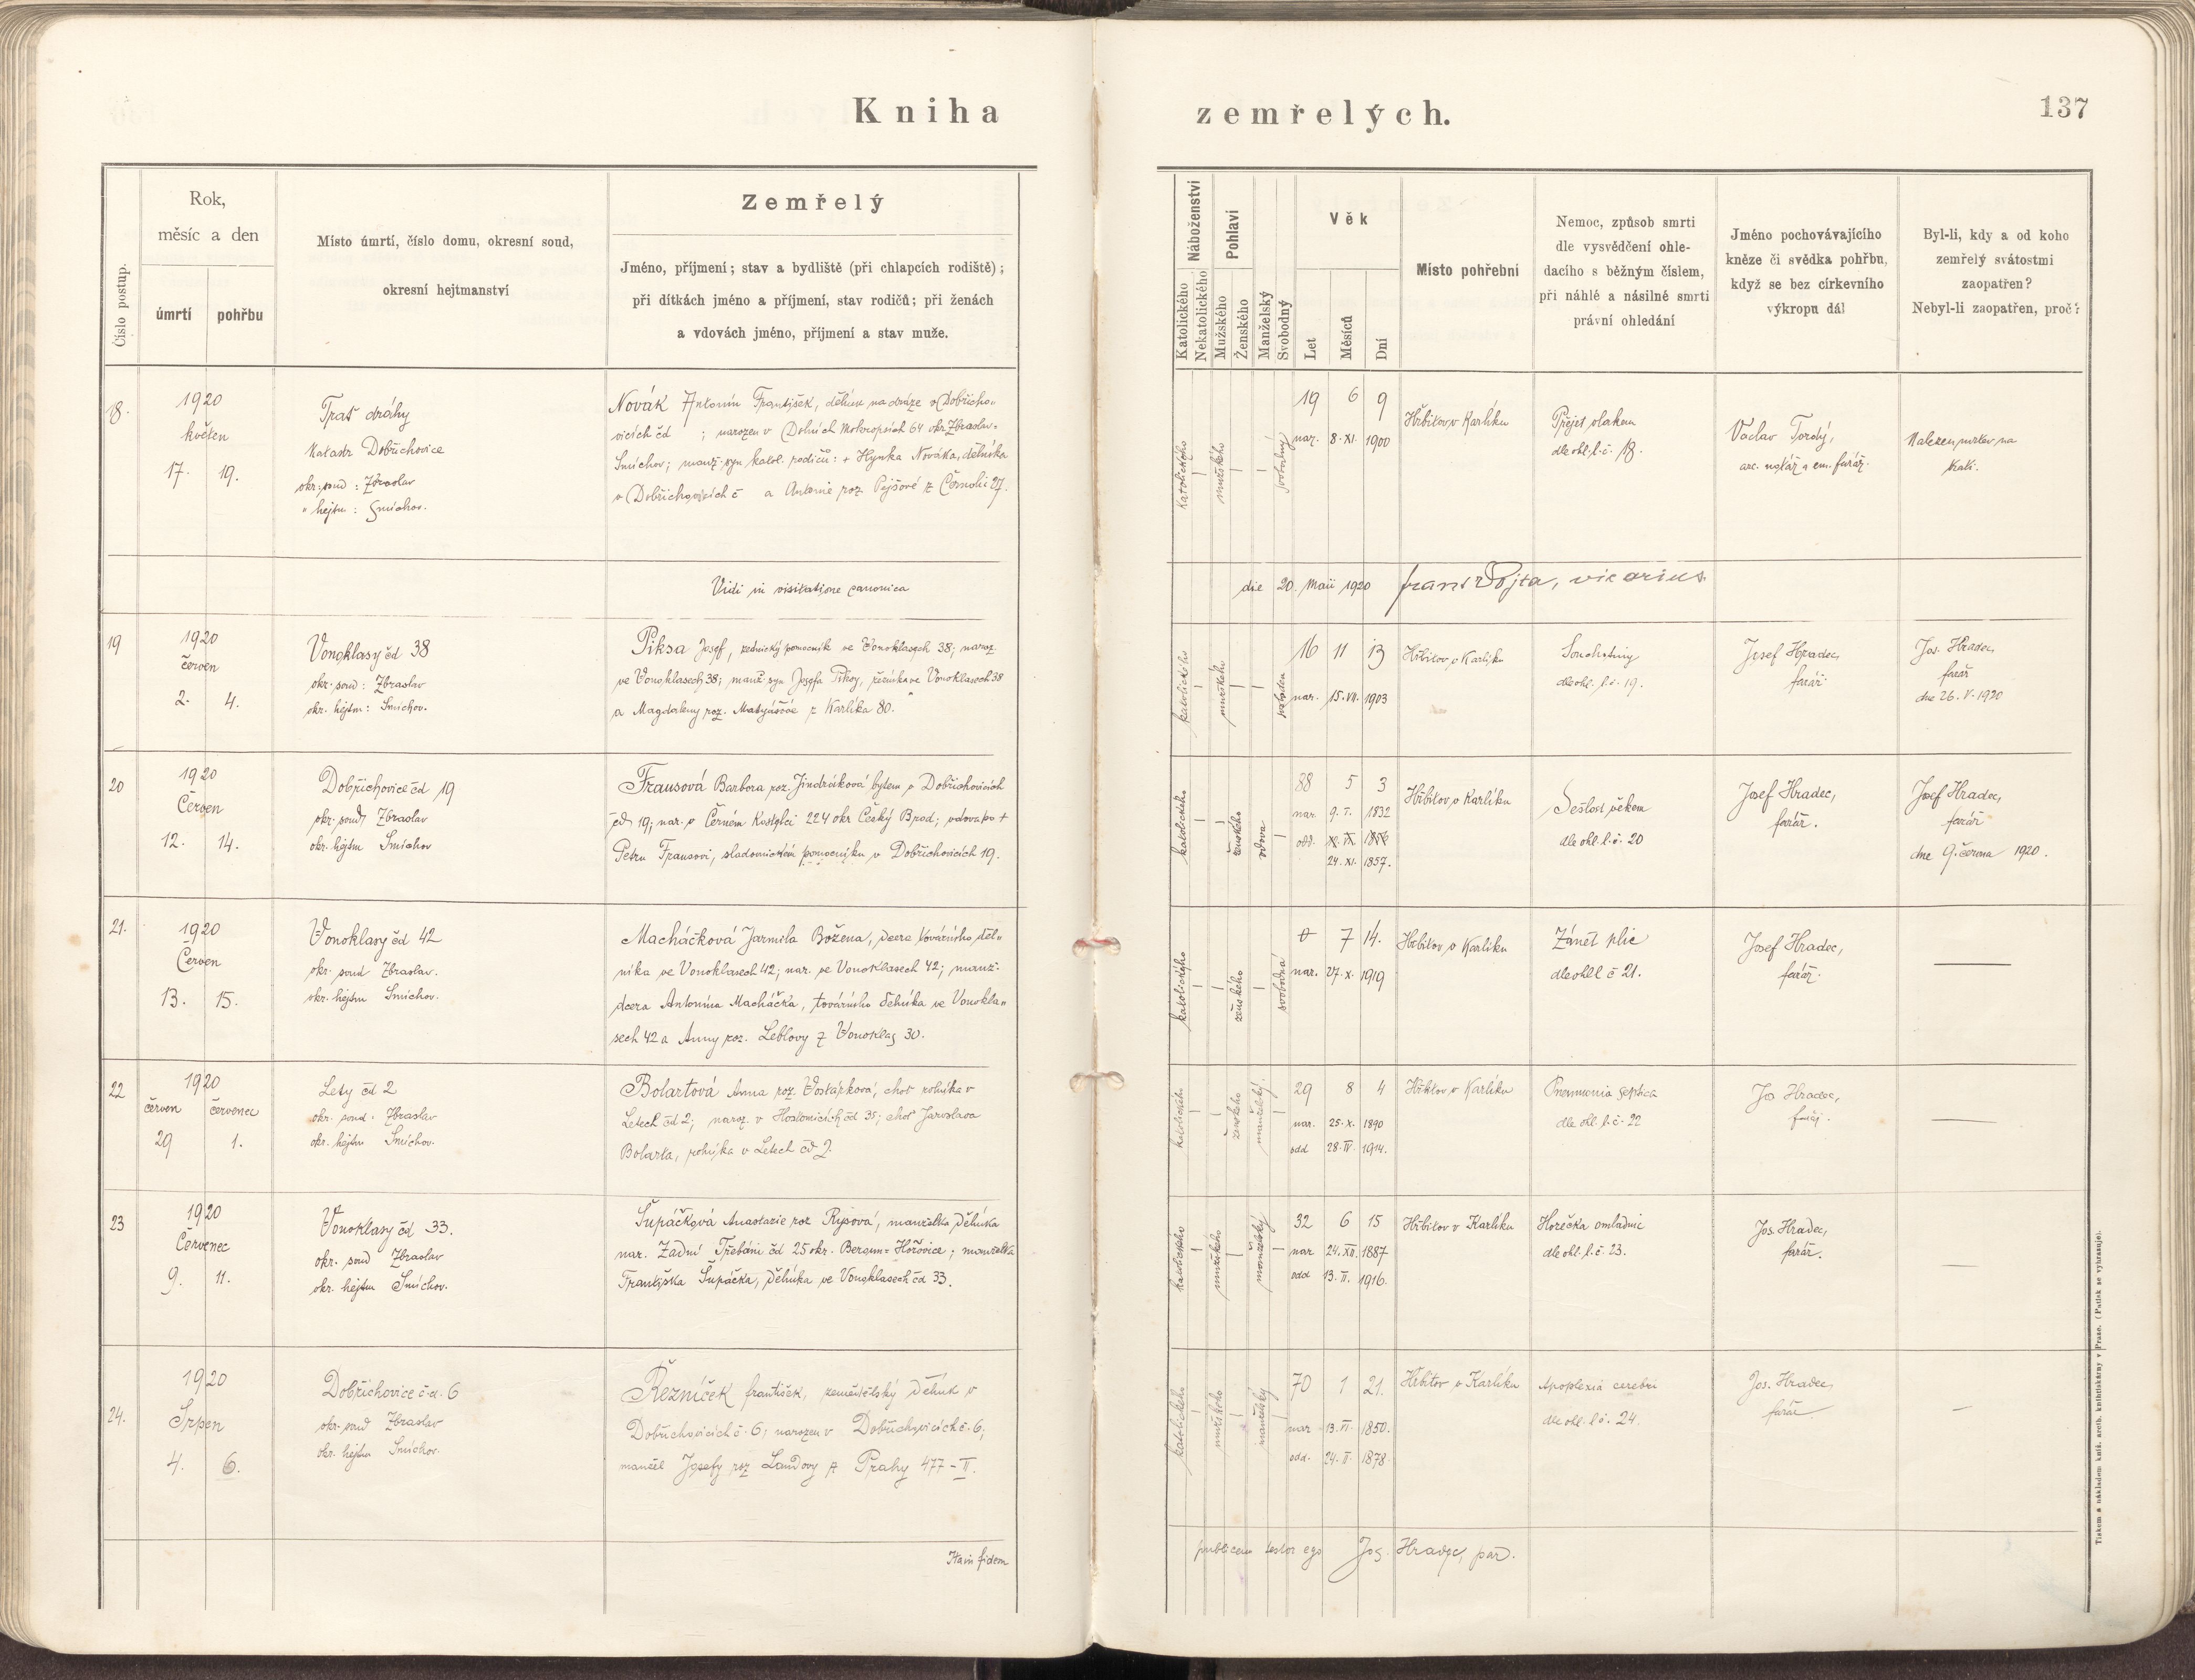 Kniha zemřelých.
137
Číslo postup.
Rok,
měsíc a den
úmrtí
pohřbu
Místo úmrtí, číslo domu, okresní soud,
okresní hejtmanství
Zemřelý
Jméno, příjmení; stav a bydliště (při chlapcích rodiště);
při dítkách jméno a příjmení, stav rodičů; při ženách
a vdovách jméno, příjmení a stav muže.
Náboženství
Katolického
Nekatolického
Pohlaví
Mužského
Ženského
Manželský
Svobodný
Věk
Let
Měsíců
Dní
Místo pohřební
Nemoc, způsob smrti
dle vysvědčení ohle-
dacího s běžným číslem,
při náhlé a násilné smrti
právní ohledání
Jméno pochovávajícího
kněze či svědka pohřbu,
když se bez církevního
výkropu dál
Byl-li, kdy a od koho
zemřelý svátostmi
zaopatřen?
Nebyl-li zaopatřen, proč?
18.
1920
květen
17. 19.
Trať dráhy
Katastr Dobřichovice
okr. soud: Zbraslav
" hejtm: Smíchov.
Novák Antonín František, dělník na dráze v Dobřicho-
vicích čd ; narozen v Dolních Mokropsích 64 okr. Zbraslav-
Smíchov; manž. syn katol. rodičů: + Hynka Nováka, dělníka
v Dobřichovicích č a Antonie roz. Pejšové z Černolic 27.
katolického
mužského
svobodný
19 6 9
nar. 8. XI. 1900
Hřbitov v Karlíku
Přejet vlakem
dle ohl. l. č. 18.
Václav Tordý,
arc. notář a em. farář.
Nalezen mrtev na
trati.
Vidi in visitatione canonica
die 20. Maii 1920 Frant. Vojta, vicarius
19
1920
červen
2. 4.
Vonoklasy čd 38
okr. soud: Zbraslav
okr. hejtm: Smíchov.
Piksa Josef, zednický pomocník ve Vonoklasech 38; naroz.
ve Vonoklasech 38; manž. syn Josefa Piksy, řezníka ve Vonoklasech 38
a Magdaleny roz. Matyášové z Karlíka 80.
katolického
mužského
svoboden
16 11 13
nar. 15. VII. 1903
Hřbitov v Karlíku
Souchotiny
dle ohl. l. č. 19.
Josef Hradec,
farář.
Jos. Hradec,
farář
dne 26. V. 1920
20
1920
Červen
12. 14.
Dobřichovice čd 19
okr. soud Zbraslav
okr. hejtm Smíchov
Frausová Barbora roz. Jindráková bytem v Dobřichovicích
čd 19; nar. v Černém Kostelci 224 okr. Český Brod; vdova po +
Petru Frausovi, sladovnickém pomocníku v Dobřichovicích 19.
katolického
ženského
vdova
88 5 3
nar. 9. I. 1832
odd.
24. XI. 1857.
Hřbitov v Karlíku
Sešlost věkem
dle ohl. l. č. 20
Josef Hradec,
farář.
Josef Hradec,
farář
dne 9. června 1920.
21.
1920
Červen
13. 15.
Vonoklasy čd 42
okr. soud Zbraslav.
okr. hejtm Smíchov.
Macháčková Jarmila Božena, dcera továrního děl-
níka ve Vonoklasech 42; nar. ve Vonoklasech 42; manž.
dcera Antonína Macháčka, továrního dělníka ve Vonokla-
sech 42 a Anny roz. Leblovy z Vonoklas 30.
katolického
ženského
svobodná
0 7 14.
nar. 27. X. 1919
Hřbitov v Karlíku
Zánět plic
dle ohl l č 21.
Josef Hradec,
farář.
22
1920
červen červenec
29 1.
Lety čd 2
okr. soud. Zbraslav
okr. hejtm Smíchov.
Bolartová Anna roz. Vostárková, choť rolníka v
Letech čd 2; naroz. v Hostomicích čd 35; choť Jaroslava
Bolarta, rolníka v Letech čd 2.
katolického
ženského
manželský.
29 8 4
nar. 25. X. 1890
odd 28. IV. 1914.
Hřbitov v Karlíku
Pneumonia septica
dle ohl. l. č. 22
Jos Hradec,
farář.
23
1920
Červenec
9. 11.
Vonoklasy čd. 33.
okr. soud Zbraslav
okr. hejtm Smíchov.
Šupáčková Anastazie roz Rysová, manželka dělníka
nar. Zadní Třebáni čd 25 okr. Beroun-Hořovice; manželka
Františka Šupáčka, dělníka ve Vonoklasech čd 33.
katolického
mužského
manželský
32 6 15
nar 24. XII. 1887
odd 13. II. 1916.
Hřbitov v Karlíku
Horečka omladnic
dle ohl. l. č. 23.
Jos. Hradec,
farář.
24.
1920
Srpen
4. 6.
Dobřichovice č. d. 6
okr. soud Zbraslav
okr. hejtm Smíchov.
Řezníček František, zemědělský dělník v
Dobřichovicích č. 6; narozen v Dobřichovicích č. 6;
manžel Josefy roz Landovy z Prahy 477-II.
katolického
mužského
manželský
70 1 21.
nar 13. VI. 1850.
odd. 24. II. 1878.
Hřbitov v Karlíku
Apoplexia cerebri
dle ohl. l. č. 24.
Jos. Hradec,
farář
In cuius fidem
publicam testor ego Jos. Hradec, par.
Tiskem a nákladem kníž. arcib. knihtiskárny v Praze. (Patisk se vyhrazuje).